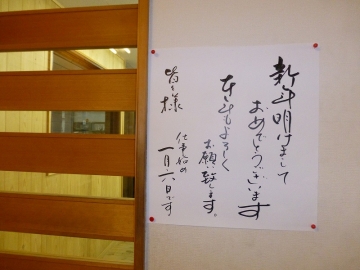 新年明けまして
おめでとうございます
本年もよろしく
お願い致します。
皆々様
仕事始めの
一月六日です